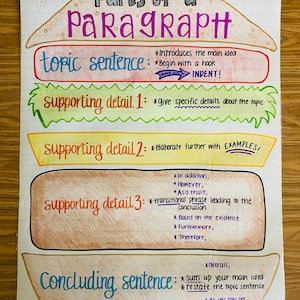 Parts of a
PARAGRAPH
topic sentence:
* Introduces the main idea
* Begin with a hook
INDENT!
supporting detail 1:
* give specific details about the topic
supporting detail 2:
* Elaborate further with EXAMPLES!
supporting detail 3:
* In addition,
* However,
* As a result,
* transitional phrase leading to the
conclusion
* Based on the evidence
* Furthermore,
* Therefore,
Concluding sentence:
* Overall,
* sum up your main idea
* restate the topic sentence